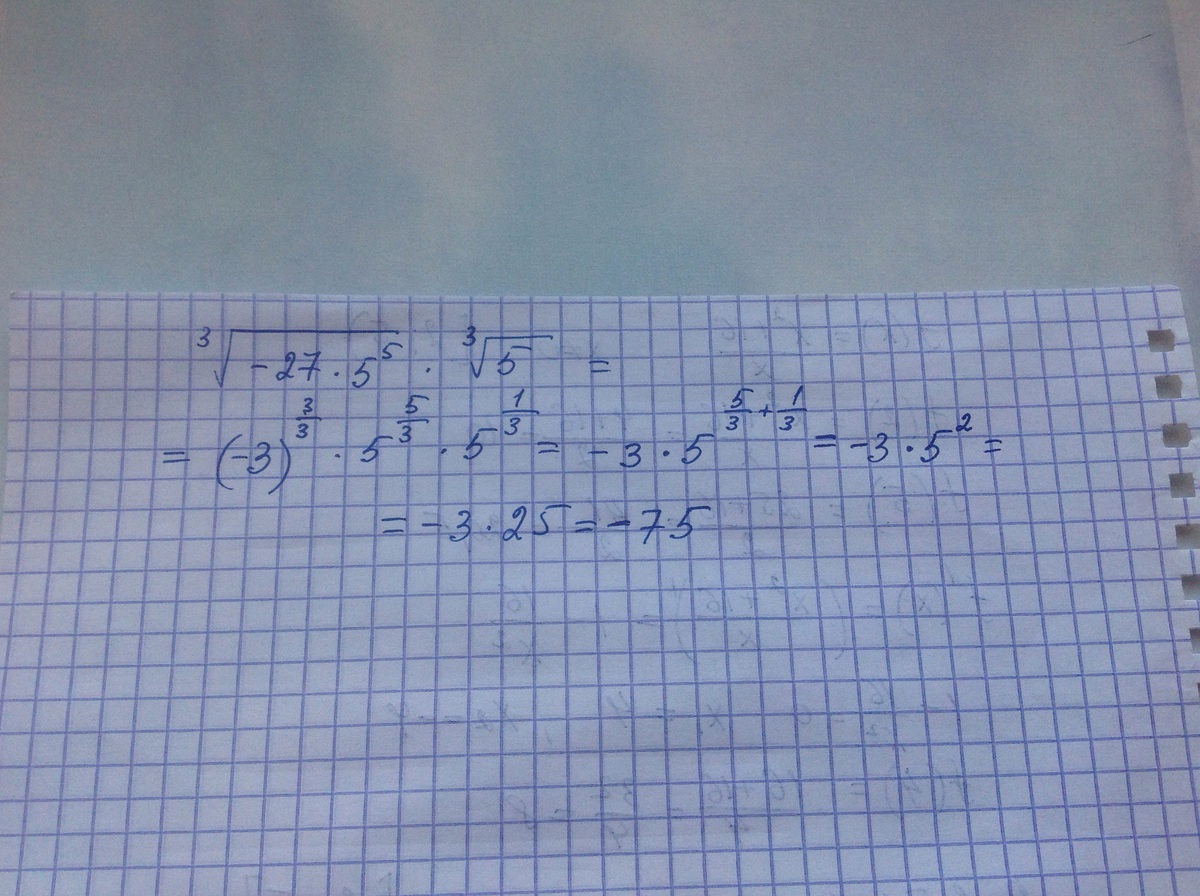 ∛(-27 · 5⁵) · ∛5 =
= (-3)^(3/3) · 5^(5/3) · 5^(1/3) = -3 · 5^(5/3 + 1/3) = -3 · 5² =
= -3 · 25 = -75